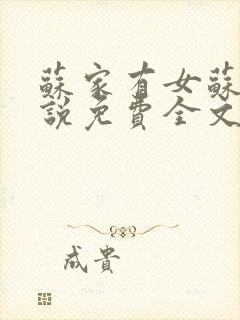 蘇家有女蘇
說免費全文
成貴